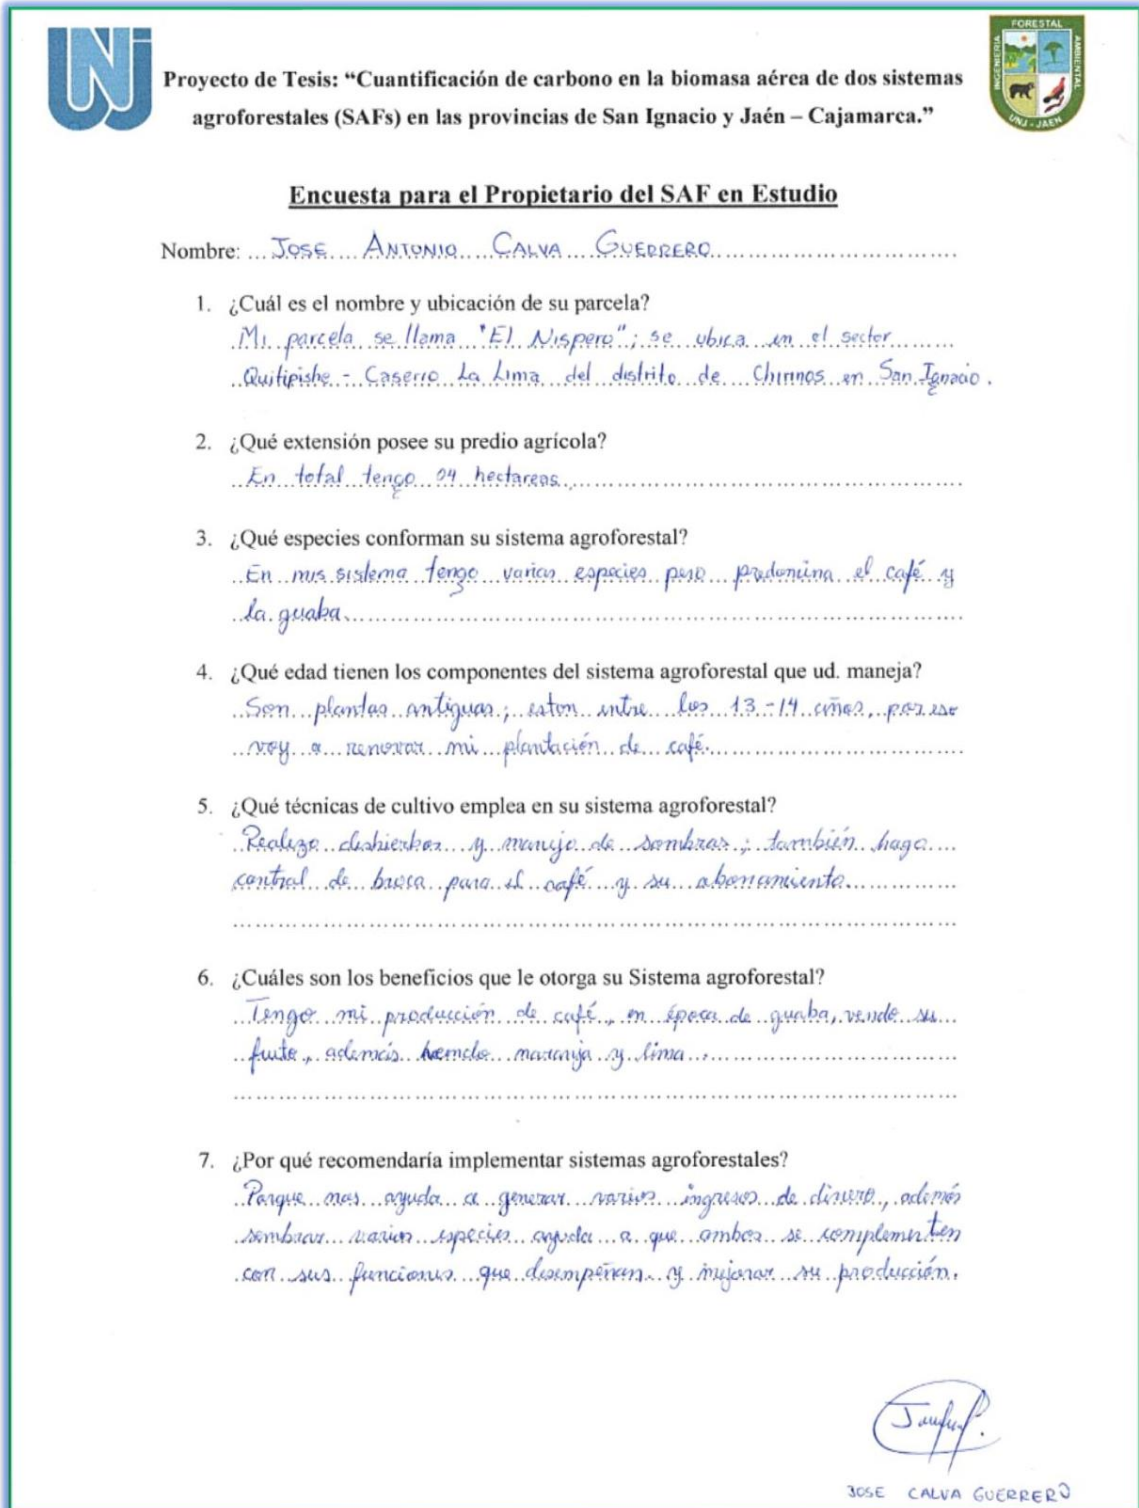 UNJ
FORESTAL
INGENIERIA
AMBIENTAL
UNJ - JAEN
Proyecto de Tesis: “Cuantificación de carbono en la biomasa aérea de dos sistemas
agroforestales (SAFs) en las provincias de San Ignacio y Jaén – Cajamarca.”
Encuesta para el Propietario del SAF en Estudio
Nombre: JOSE ANTONIO CALVA GUERRERO
1. ¿Cuál es el nombre y ubicación de su parcela?
Mi parcela se llama "El Nispero"; se ubica en el sector
Quitipishe - Caserio La Lima del distrito de Chirinos en San Ignacio.
2. ¿Qué extensión posee su predio agrícola?
En total tengo 04 hectareas.
3. ¿Qué especies conforman su sistema agroforestal?
En mis sistema tengo varias especies pero predomina el café y
la guaba
4. ¿Qué edad tienen los componentes del sistema agroforestal que ud. maneja?
Son plantas antiguas; estan entre los 13-14 años, por eso
voy a renovar mi plantación de café.
5. ¿Qué técnicas de cultivo emplea en su sistema agroforestal?
Realizo deshierbos y manejo de sombras; también hago
control de broca para el café y su abonamiento.
6. ¿Cuáles son los beneficios que le otorga su Sistema agroforestal?
Tengo mi producción de café, en época de guaba, vendo su
fruto, además naranja y lima.
7. ¿Por qué recomendaría implementar sistemas agroforestales?
Porque nos ayuda a generar varios ingresos de dinero, además
sembrar varias especies ayuda a que ambos se complementen
con sus funciones que desempeñan y mejorar su producción.
JOSE CALVA GUERRERO